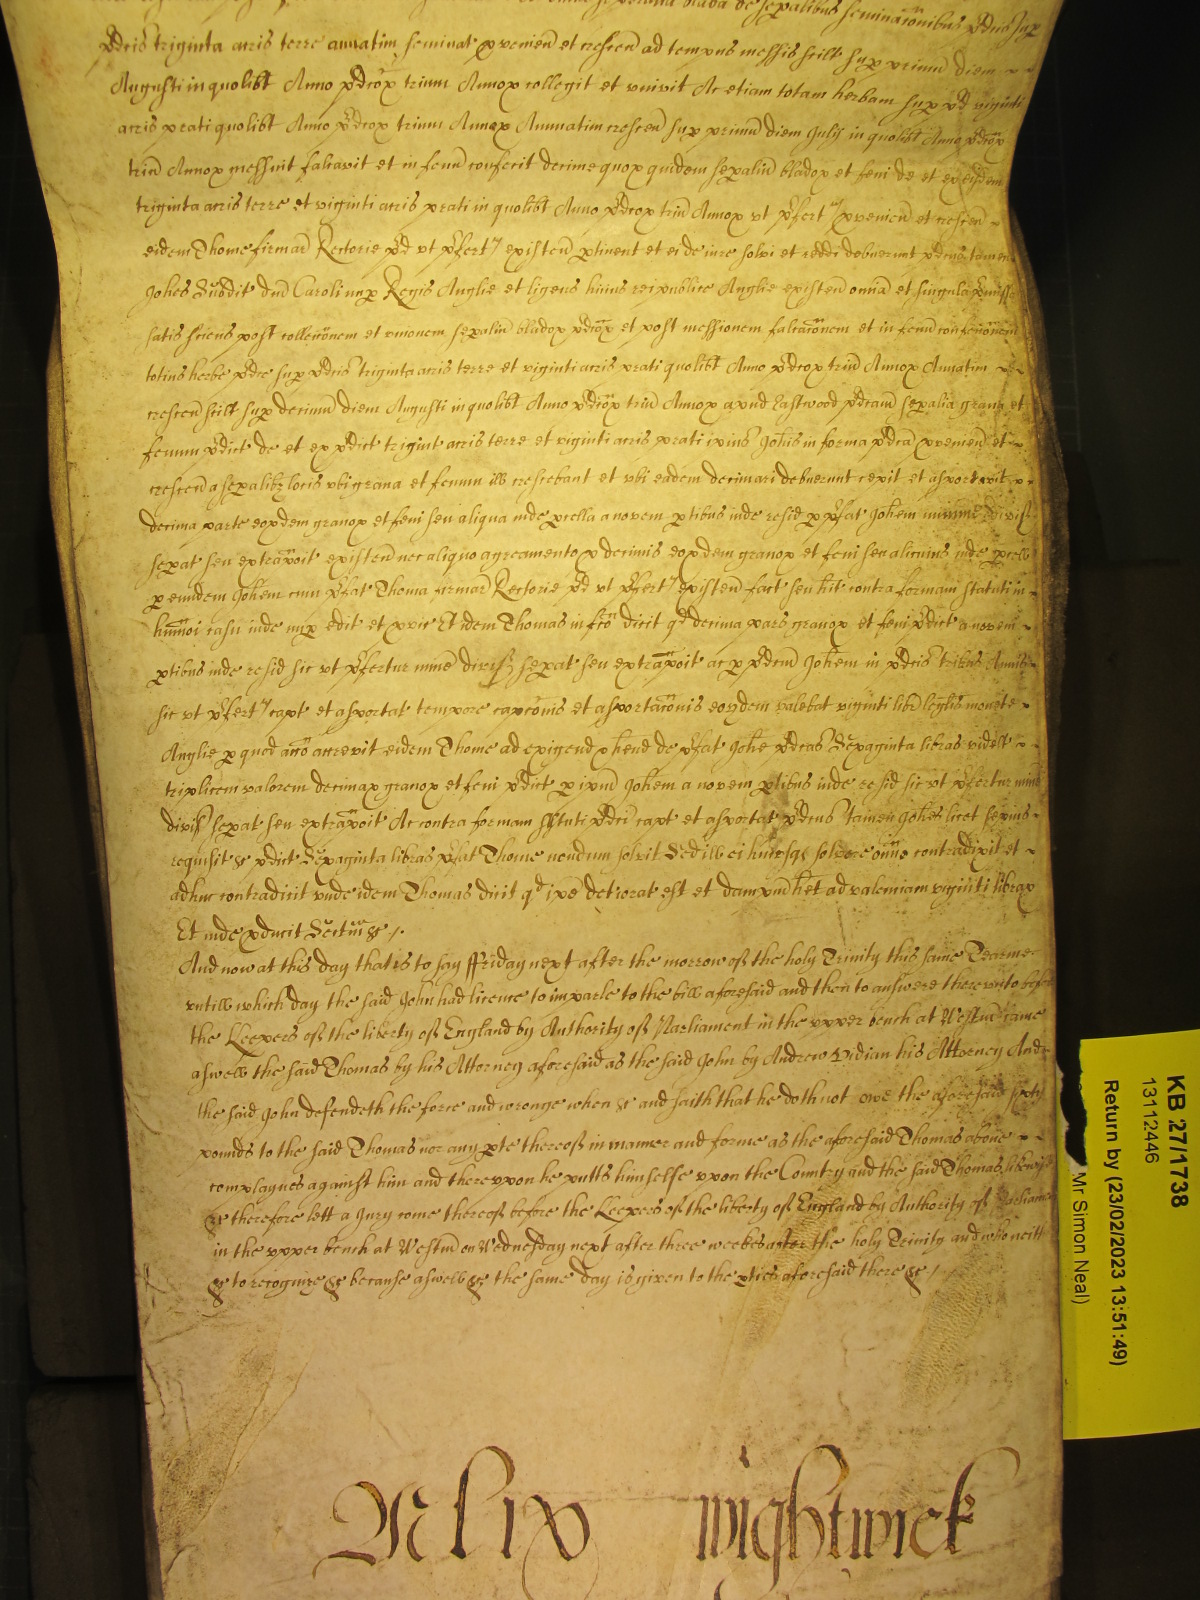 p̄dcis triginta acris terre annatim seminat pvenien̄ et crescen̄ ad tempus messis scilt sup primū diem
Augusti in quolibt Anno p̄dcoꝝ trium Annoꝝ collegit et univit Ac etiam totam herbam sup p̄d viginti
acris prati quolibt Anno p̄dcoꝝ trium Annoꝝ Annuatim crescen̄ sup primū diem Julij in quolibt Anno p̄dcoꝝ
triū Annoꝝ messuit falcavit et in fenū confecit decime quoꝝ quidem sepaliū bladoꝝ et feni de et ex eisdem
triginta acris terre et viginti acris prati in quolibt Anno p̄dcoꝝ triū Annoꝝ vt p̄fert pvenien̄ et crescen̄
eidem Thome firmar̄ Rectorie p̄d vt p̄fert existen̄ ptinent et ei de iure solvi et reddi debuerunt p̄dcus tamen
Johes Subdit dn̄i Caroli nup Regis Anglie et ligeus huius reipublice Anglie existen̄ omīa et singula p̄missa
satis sciens post collecc̄onem et unionem sepaliū bladoꝝ p̄dcoꝝ et post messionem falcac̄onem et in fenū confecc̄onem
totius herbe p̄dce sup p̄dcis triginta acris terre et viginti acris prati quolibt Anno p̄dcoꝝ triū Annoꝝ Annatim
crescen̄ scilt sup decimū diem Augusti in quolibt Anno p̄dcoꝝ triū Annoꝝ apud Eastwood p̄dcam sepalia grana et
fenum p̄dict de et ex p̄dict trigint acris terre et viginti acris prati ip̄ius Johis in forma p̄dca pvenien̄ et
crescen̄ a sepalibz locis ubi grana et fenum ill crescebant et ubi eadem decimari debuerunt cepit et asportavit
decima parte eoꝝdem granoꝝ et feni seu aliqua inde pcella a novem ptibus inde resid p p̄fat Johem minime divis
sepat seu extraposit existen̄ nec aliquo agreamento p decimis eoꝝdem granoꝝ et feni seu alicuius inde pcell
p eundem Johem cum p̄fat Thoma firmar̄ Rectorie p̄d vt p̄fert existen̄ fact seu hit contra formam statuti in
hmōi casu inde nup edit et pvis Et idem Thomas in fco dicit qd decima pars granoꝝ et feni p̄dict a novem
ptibus inde resid sic vt p̄fertur minīe divis sepat seu extraposit ac p p̄dcm̄ Johem in p̄dcis tribus Annis
sic vt p̄fert capt et asportat tempore capc̄onis et asportac̄onis eorundem valebat viginti libr̄ leglis monete
Anglie p quod acc̄o accrevit eidem Thome ad exigend et hend de p̄fat Johe p̄dcas Sexaginta libras videlt
triplicem valorem decimaꝝ granoꝝ et feni p̄dict p ip̄um Johem a novem ptibus inde resid sic vt p̄fertur mime
divis sepat seu extraposit Ac contra formam statuti p̄dci capt et asportat p̄dcus tamen Johes licet sepius
requisit &c p̄dict Sexaginta libras p̄fat Thome nondum solvit Sed ill ei hucusqe solvere omīo contradixit et
adhuc contradicit unde idem Thomas dicit qd ip̄e detiorat est et dampnū het ad valenciam viginti libraꝝ
Et inde pducit Sectam &c /.
And now at this day that is to say Ffriday next after the morrow of the holy Trinity this same Tearme
untill which day the said John had licence to imparle to the bill aforesaid and then to answere thereunto before
the Keepers of the liberty of England by Authority of Parliament in the upper bench at Westm̄ came
aswell the said Thomas by his Attorney aforesaid as the said John by Andrew Vidian his Attorney And
the said John defendeth the force and wronge when &c and saith that he doth not owe the aforesaid sixty
pounds to the said Thomas nor any pte thereof in manner and forme as the aforesaid Thomas above
complaynes against him and thereupon he putts himselfe upon the Country and the said Thomas likewise
&c therefore lett a Jury come thereof before the Keepers of the liberty of England by Authority of Parliament
in the upper bench at Westm̄ on Wednesday next after three weekes after the holy Trinity and who neither
&c to recognize &c because aswell &c the same day is given to the pties aforesaid there &c /.
Mlix wightwick
KB 27/1738
13112446
Return by (23/02/2023 13:51:49)
Mr Simon Neal)